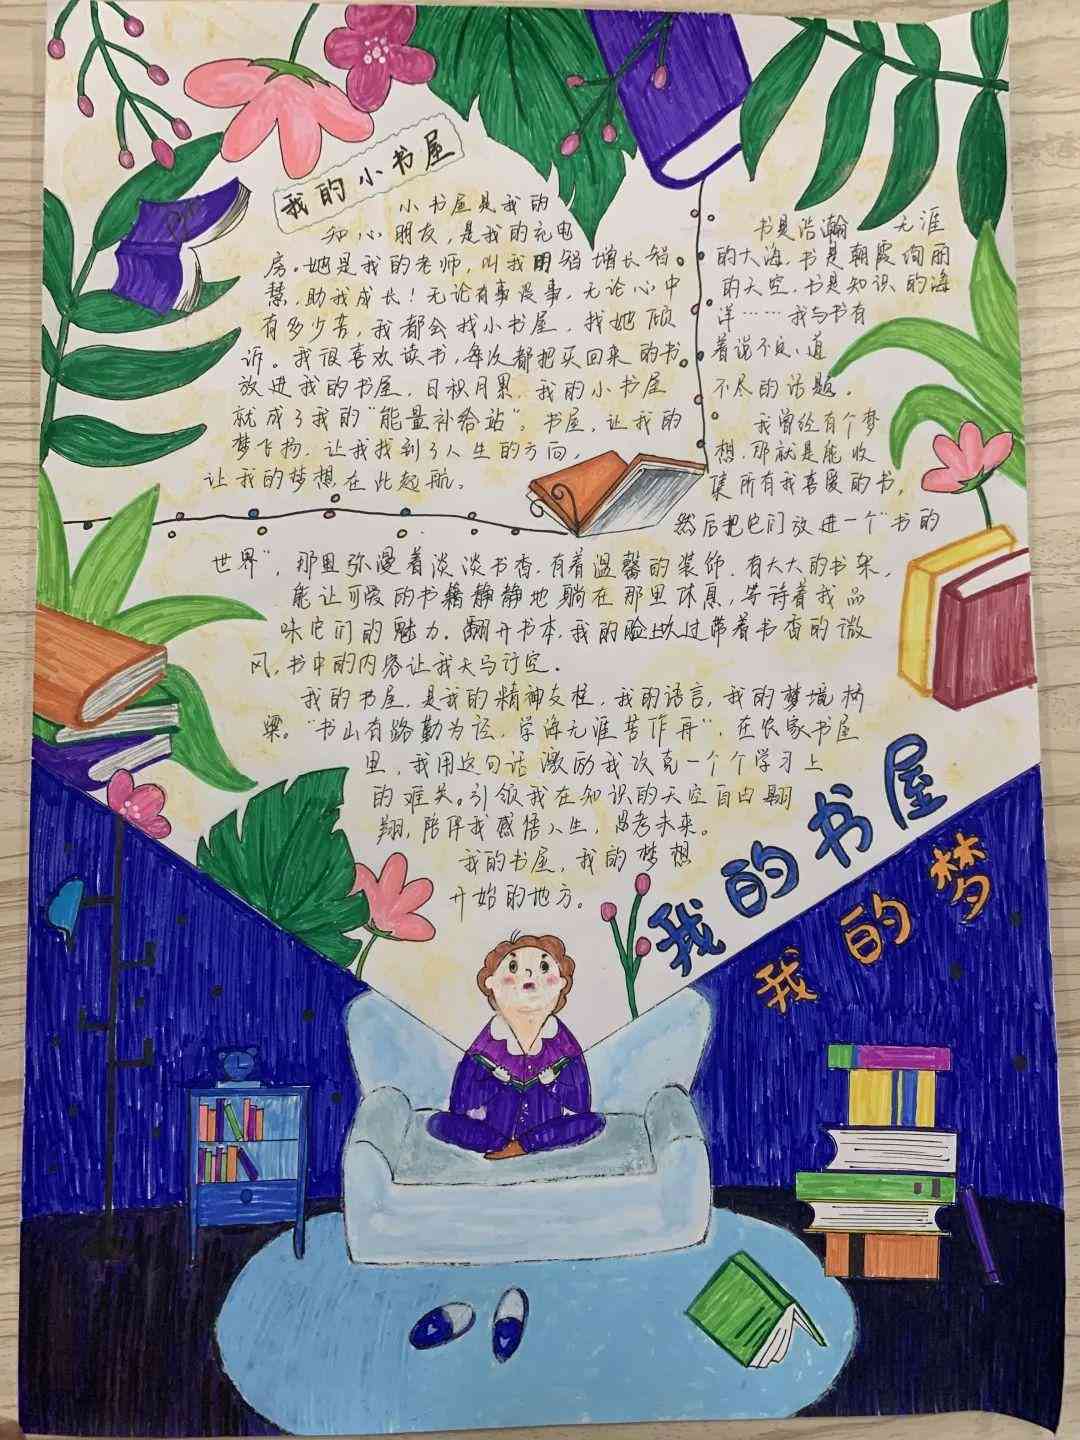 我的小书屋
小书屋是我的
知心朋友，是我的充电
房。她是我的老师，叫我用智增长智
慧，助我成长！无论有事没事，无论心中
有多少苦，我都会找小书屋，找她倾
诉。我很喜欢读书，每次都把买回来的书
放进我的书屋，日积月累，我的小书屋
就成了我的“能量补给站”。书屋，让我的
梦飞扬，让我找到了人生的方向，
让我的梦想在此起航。
书是浩瀚 无涯
的大海，书是朝霞绚丽
的天空，书是知识的海
洋……我与书有
着说不完、道
不尽的话题。
我曾经有个梦
想，那就是能收
集所有我喜爱的书，
然后把它们放进一个“书的
世界”，那里弥漫着淡淡书香，有着温馨的装饰，有大大的书架，
能让可爱的书籍静静地躺在那里休息，等待着我品
味它们的魅力，翻开书本，我的脸上吹过带着书香的微
风，书中的内容让我天马行空。
我的书屋，是我的精神支柱，我的语言，我的梦境桥
梁。“书山有路勤为径，学海无涯苦作舟”，在农家书屋
里，我用这句话激励我攻克一个个学习上
的难关。引领我在知识的天空自由翱
翔，陪伴我感悟人生，思考未来。
我的书屋，我的梦想
开始的地方。
我的书屋
我的梦